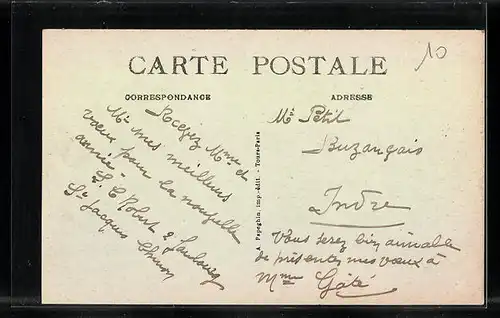 10
CARTE POSTALE
CORRESPONDANCE
ADRESSE
Recevez Mme et
Mr mes meilleurs
vœux pour la nouvelle
année -
L. C Robert 2 Faubourg
St Jacques Chinon
A. Papeghin, imp.-édit. - Tours-Paris
Mr Petit
Buzançais
Indre
Vous serez bien aimable
de présenter mes vœux à
Mme Gâté